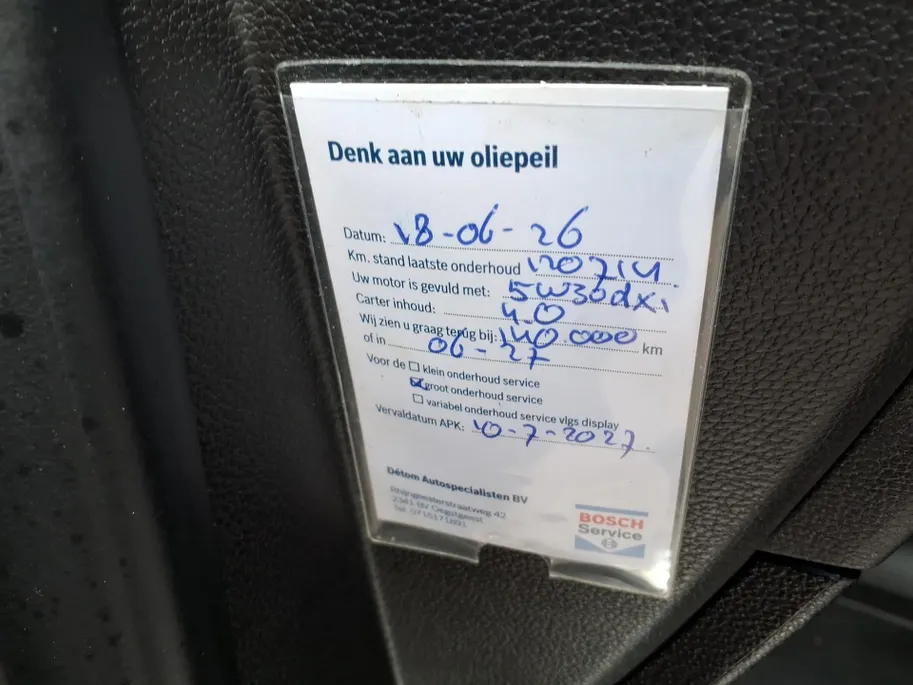 Denk aan uw oliepeil
Datum: 18-06-26
Km. stand laatste onderhoud
Uw motor is gevuld met: 5W30dxi
Carter inhoud: 4.0
Wij zien u graag terug bij: 140.000 km
of in 06-27
Voor de klein onderhoud service
groot onderhoud service
variabel onderhoud service vlgs display
Vervaldatum APK: 10-7-2027.
Détom Autospecialisten BV
Rhijngeesterstraatweg 42
2341 BV Oegstgeest
Tel. 0715171891
BOSCH
Service